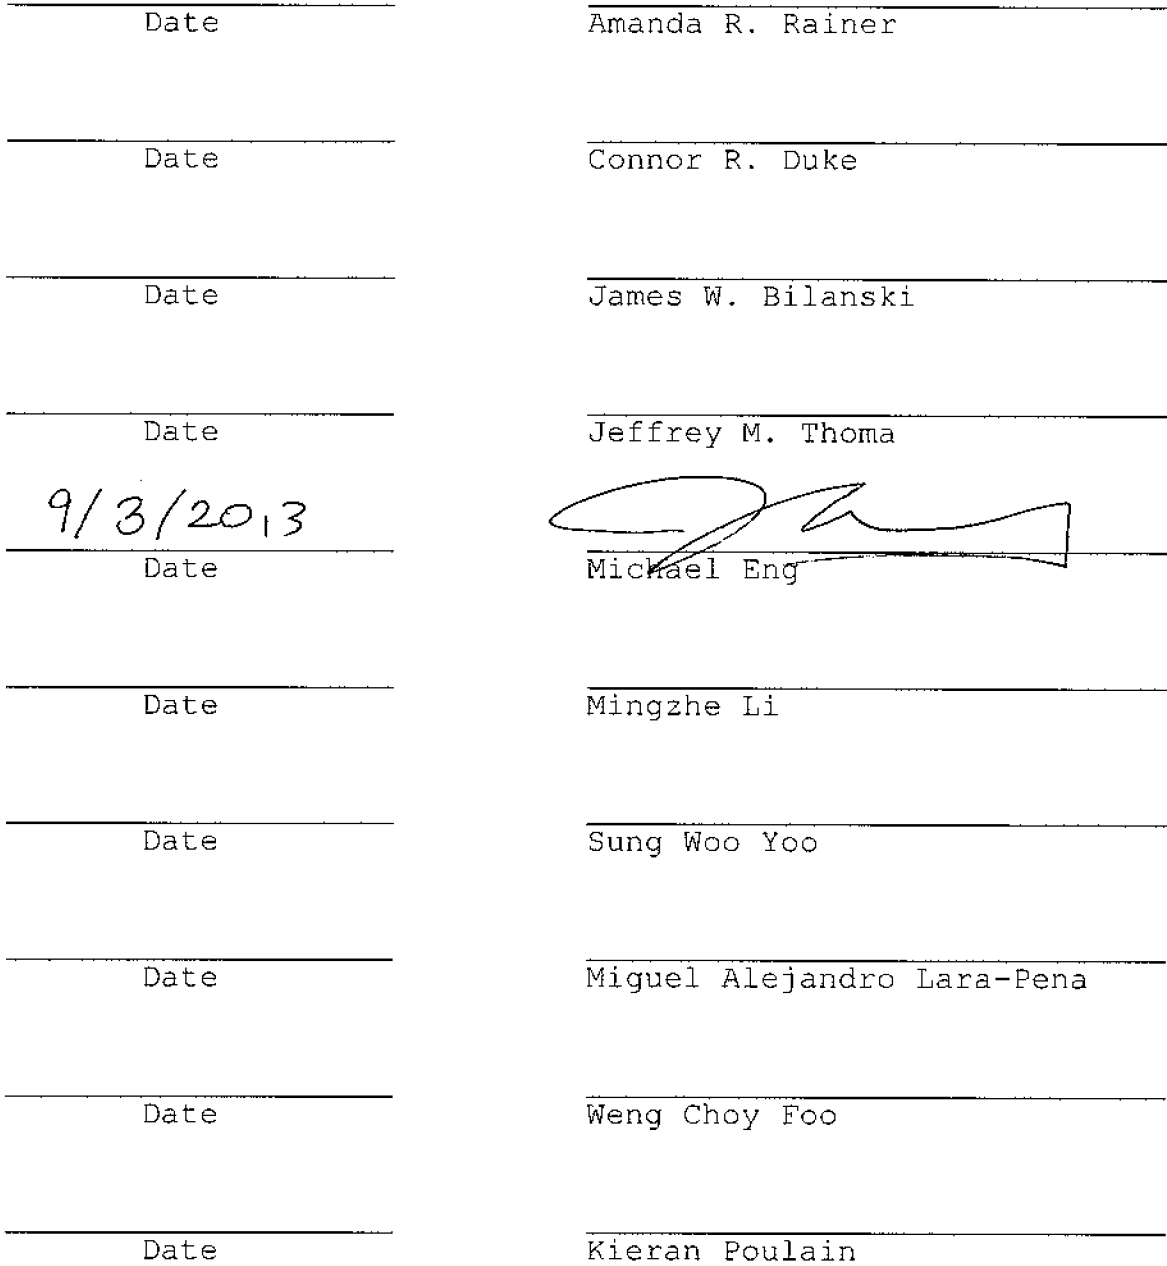 Date Amanda R. Rainer
Date Connor R. Duke
Date James W. Bilanski
Date Jeffrey M. Thoma
9/3/2013
Date Michael Eng
Date Mingzhe Li
Date Sung Woo Yoo
Date Miguel Alejandro Lara-Pena
Date Weng Choy Foo
Date Kieran Poulain